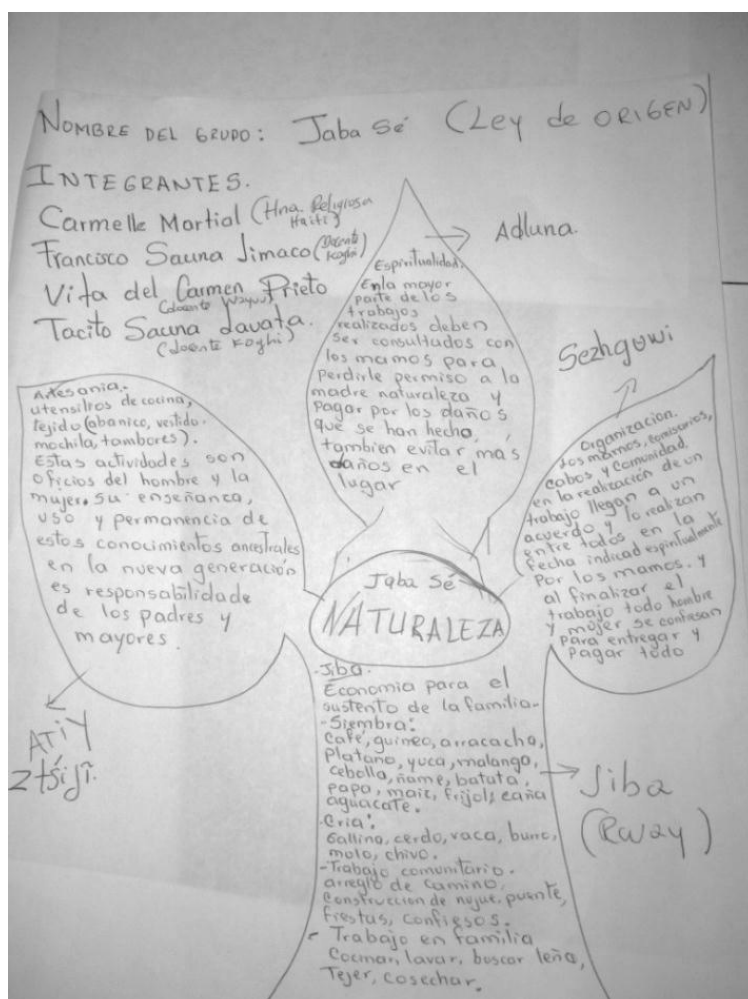 NOMBRE DEL GRUPO: Jaba Sé (Ley de ORIGEN)
INTEGRANTES.
Carmelle Martial (Hna. Religiosa
Haiti)
Francisco Sauna Jimaco (Docente
Koghi)
Vita del Carmen Prieto
(docente Wayuu)
Tacito Sauna Lavata.
(docente Koghi)
Adluna.
Espiritualidad.
En la mayor
parte de los
trabajos
realizados deben
ser consultados con
los mamos para
Perdirle permiso a la
madre naturaleza y
pagar por los daños
que se han hecho,
tambien evitar más
daños en el
lugar
Sezhguwi
Organización.
Los mamos, comisarios,
cabos y comunidad.
en la realización de un
trabajo llegan a un
acuerdo y lo realizan
entre todos en la
fecha indicad espiritualmente
Por los mamos. y
al finalizar el
trabajo todo hombre
y mujer se confiesan
para entregar y
pagar todo
Artesania.
utensilios de cocina,
tejido (abanico, vestido.
mochila, tambores).
Estas actividades son
oficios del hombre y la
mujer. su enseñanza,
uso y permanencia de
estos conocimientos ancestrales
en la nueva generación
es responsabilidade
de los padres y
mayores.
ATiY
ztšijî.
Jaba Sé
NATURALEZA
-Jiba.
Economia para el
sustento de la familia-
-Siembra:
Café, guineo, arracacha,
Platano, yuca, malanga,
cebolla, ñame, batata,
papa, maiz, frijol, caña
aguacate.
-Cria:
Gallina, cerdo, vaca, burro,
mulo, chivo.
-Trabajo comunitario.
arreglo de camino,
Construccion de nujue. puente,
fiestas, confiesos.
- Trabajo en familia
Cocinar, lavar, buscar leña,
Tejer, cosechar.
Jiba
(Rway)